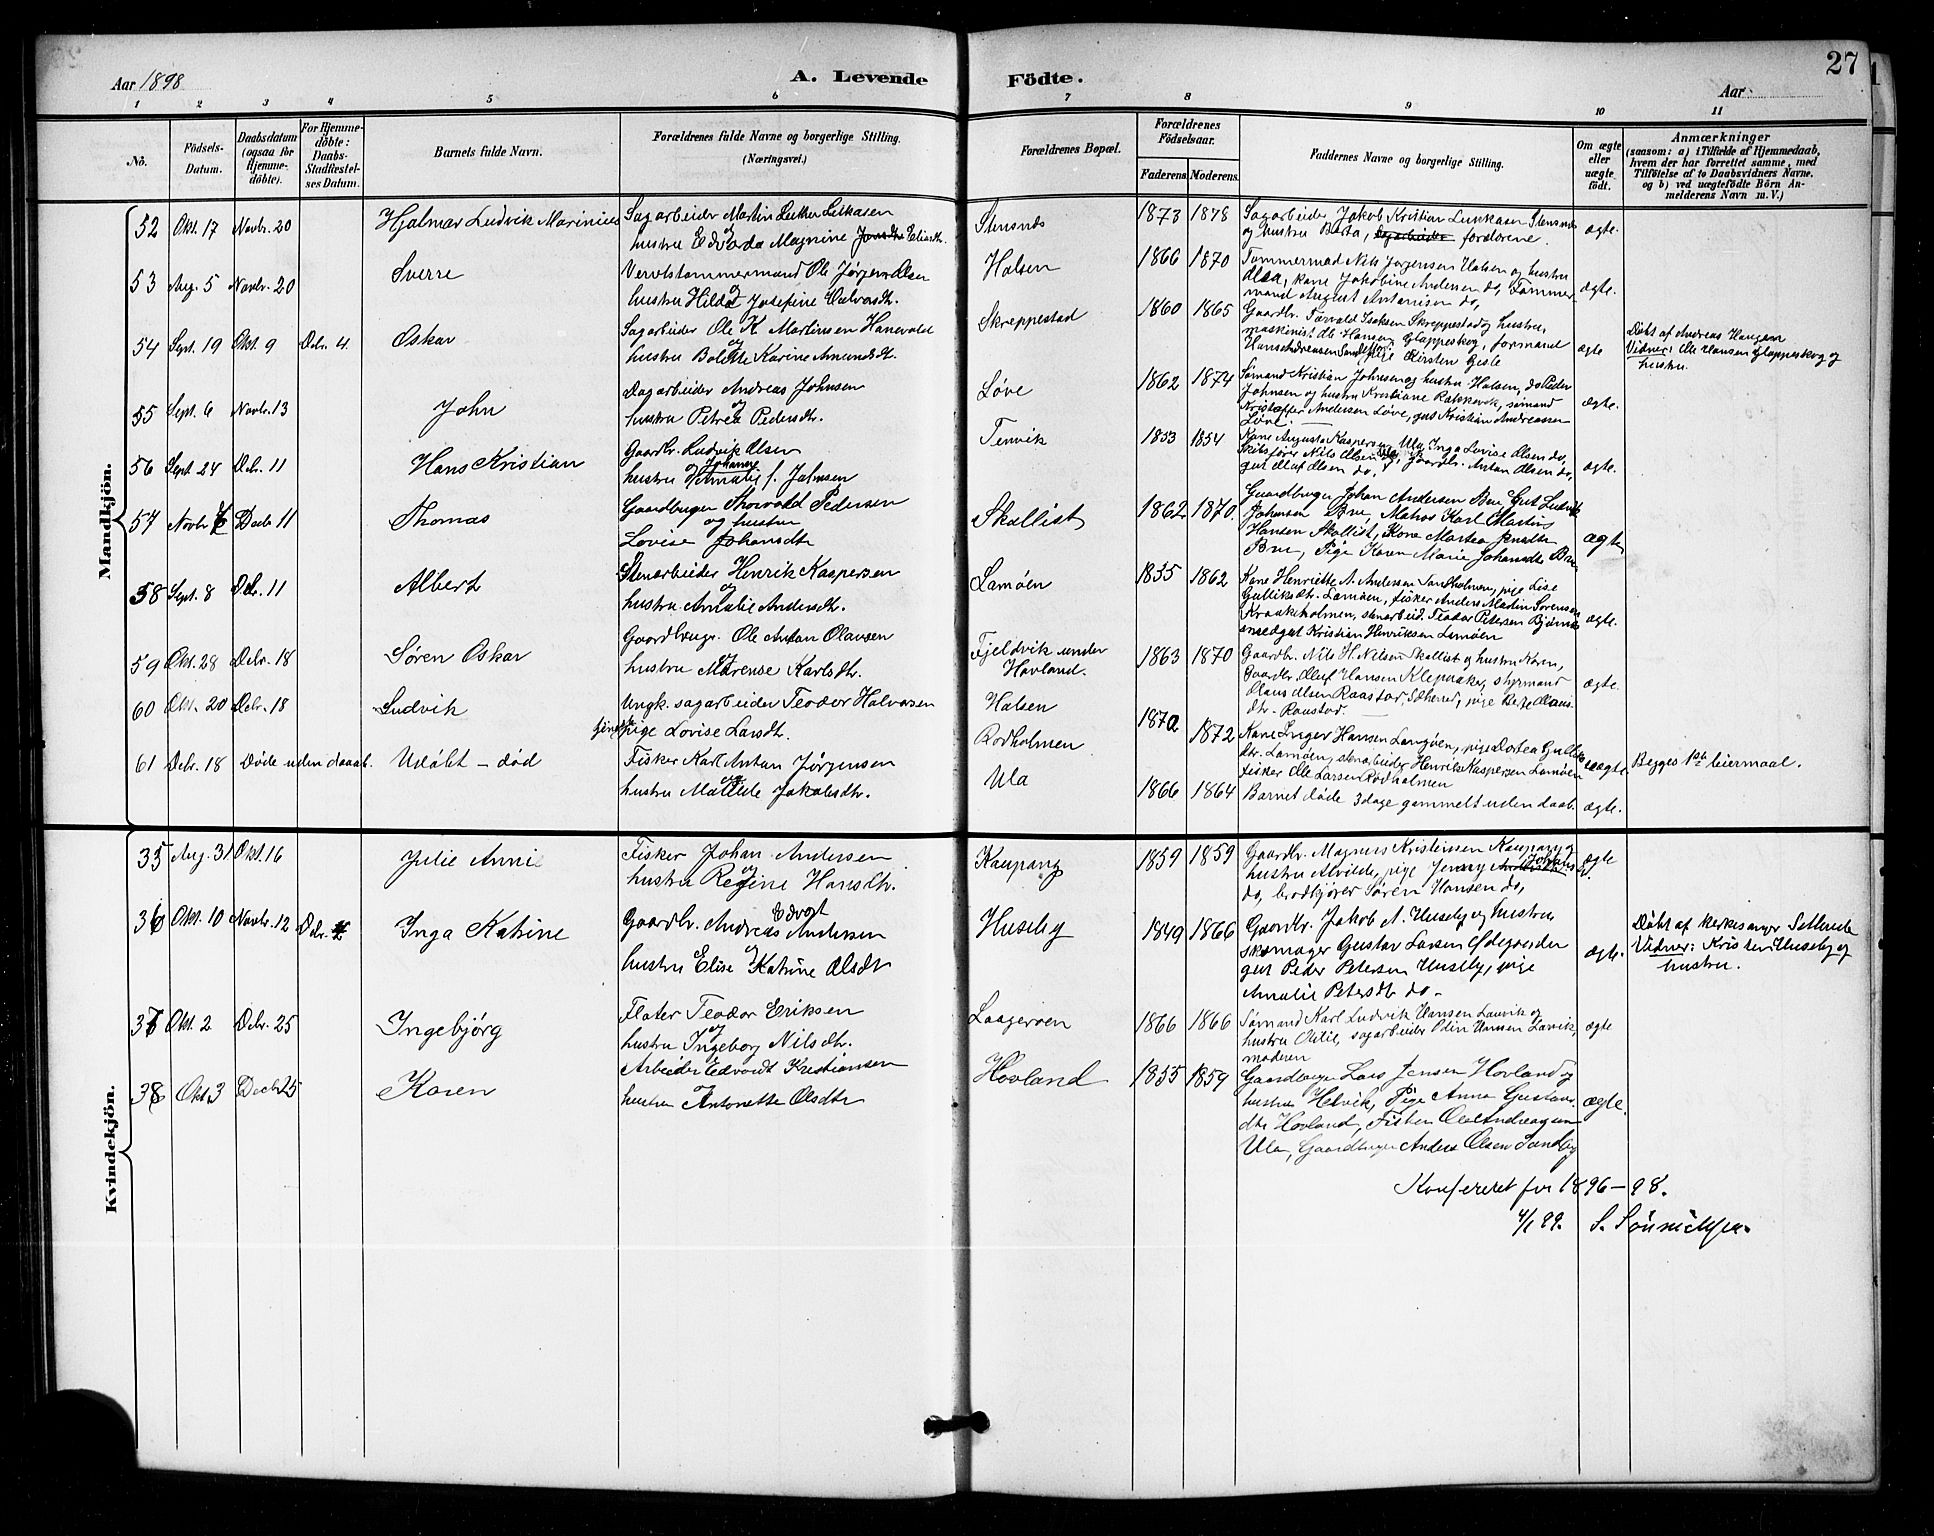 27
Aar 1898
A. Levende Födte.
Aar
1 2 3 4 5 6 7 8 9 10 11
No.
Födsels-Datum.
Daabsdatum (ogsaa for Hjemme-döbte).
For Hjemme-döbte: Daabs-Stadfæstel-ses Datum.
Barnets fulde Navn.
Forældrenes fulde Navne og borgerlige Stilling.
(Næringsvei.)
Forældrenes Bopæl.
Forældrenes Födselsaar.
Faderens. Moderens.
Faddernes Navne og borgerlige Stilling.
Om ægte eller uægte födt.
Anmærkninger
(saasom: a) i Tilfælde af Hjemmedaab, hvem der har forrettet samme, med Tilföielse af to Daabsvidners Navne, og b) ved uægtefödte Börn An-melderens Navn m. V.)
Mandkjön.
52 Okt. 17 Novbr. 20 Hjalmar Ludvik Marinius
Sagarbeider Martin
og
hustru Edvarda Magnine Eliasdtr.
Stensnes
1873 1878
Sagarbeider Jakob Kristian Stensnes
og hustru Berta, forældrene.
ægte.
53 Aug. 5 Novbr. 20 Sverre
Vervstømmermand Ole Jørgen Olsen
og
hustru Hilda Josefine
Halsen
1866 1870
Tømmermand Nils Jørgensen Halsen og hustru
Olea, kone Jakobine Andersen do, Tømmer-
mand August Antonisen do,
ægte.
54 Sept. 19 Okt. 9 Debr. 4. Oskar
Sagarbeider Ole K. Martinsen Hanevold
og
hustru Bolette Karine Amundsdtr.
Skreppestad
1860 1865
Gaardbr. Torvald Isaksen Skreppestad og hustru,
maskinist Ole Hansen Glappeskog, formand
Hans Andreassen pige Kirsten Gisle
ægte
Døbt af Andreas Haugen
Vidner: Ole Hansen Glappeskog og
hustru.
55 Sept. 6 Novbr. 13 John
Dagarbeider Andreas Johnsen
og
hustru Petrea Pedersdtr.
Løve
1862 1874
Sømand Kristian Johnsen og hustru Halsen, do Peder
Johnsen og hustru Kristiane Rakkevik, sømand
Kristoffer Andersen Løve, gut Kristian Andreassen
Løve.
ægte.
56 Sept. 24 Debr. 11 Hans Kristian
Gaardbr. Ludvik Olsen
Johanne
hustru Amalie f. Johnsen
Tenvik
1853 1854
Kone Augusta Kaspersen Ula, Inga Lovise Olsen do,
Skibsfører Nils Olsen Gaardbr. Anton Olsen do,
gut Oluf Olsen do,
ægte.
57 Novbr. 6 Decbr 11 Thomas
Gaardbruger Thorvald Pedersen
og hustru
Lovise Johansdtr
Skallist
1862. 1870.
Gaardbruger Johan Andersen Bue Gut Ludvik
Johansen Bue, Matros Karl Martin
Hansen Skallist, Kone Martea
Bue, Pige Karen Marie Johansdtr Bue
ægte
58 Sept. 8 Debr. 11 Albert
Stenarbeider Henrik Kaspersen
og
hustru Amalie Andersdtr.
Lamøen
1855 1862
Kone Henriette A. Andersen Sandholmen, pige Lise
Gulliksdtr. Lamøen, fisker Anders Martin Sørensen
Kraakeholmen, stenarbeid. Teodor Petersen
Kristian Henriksen Lamøen
ægte.
59 Okt. 28 Debr. 18 Søren Oskar
Gaardbrugr. Ole Anton Olausen
og
hustru Marense Karlsdtr.
Fjeldvik under
Hovland.
1863 1870
Gaardbr. Nils H. Nilsen Skallist og hustru Karen,
Gaardbr. Oluf Hansen Klepaker, styrmand
Olaus Olsen Raastad, Sdherred, pige Berte Olaus-
dtr. Raastad.
ægte.
60 Okt. 20 Debr. 18 Ludvik
Ungk. sagarbeider Teodor Halvorsen
pige Lovise Larsdtr.
Halsen
Rødholmen
1870
1872
Kone Inger Hansen Lamøen, pige Dortea
dtr. Lamøen, stenarbeider Henrik Kaspersen Lamøen
fisker Ole Larsen Rødholmen
uægte.
Begges 1ste leiermaal.
61 Debr. 18 Døde uden daab. Udøbt – død
Fisker Karl Anton Jørgensen
og
hustru Matilde Jakobsdtr.
Ula
1866 1864
Barnet døde 3 dage gammelt uden daab.
ægte.
Kvindekjön.
35 Aug. 31 Okt. 16 Julie Annie
Fisker Johan Andersen
og
hustru Regine Hansdtr.
Kaupang
1859 1859
Gaardbr. Magnus Kristensen Kaupang og
hustru Alvilde, pige Jenny
do, brødkjører Søren Hansen do,
ægte
36 Okt. 10 Novbr. 12 Inga Katrine
Edvart
Gaardbr. Andreas Andersen
og
hustru Elise Katrine Olsdtr
Huseby
1849 1866
Gaardbr. Jakob A. Huseby og hustru
skomager Gustav Larsen Ødegaarden
gut Peder Petersen Huseby, pige
Amalie Petersdtr do –
ægte.
Døbt af kirkesanger
Vidner: Kristen Huseby og
hustru.
37 Okt. 2 Debr. 25 Ingebjørg
Fløter Teodor Eriksen
og
hustru Ingeborg Nilsdtr.
Laagerøen
1866 1866
Sømand Karl Ludvik Hansen Lauvik og
hustru Otilie, sagarbeider Odin Hansen Lavik,
moderen
ægte
38 Okt. 3 Decbr 25 Karen
Arbeider Edvardt Kristiansen
og
hustru Antonette Olsdtr
Hovland
1855 1859
Gaardbruger Lars Jensen Hovland og
hustru Helvik, Pige Anna Gustavs-
dtr Hovland, Fisker Ole Andreassen
Ula, Gaardbruger Anders Olsen Sandby
ægte.
Konfereret for 1896–98.
4/1 99. S. Sönnichsen.